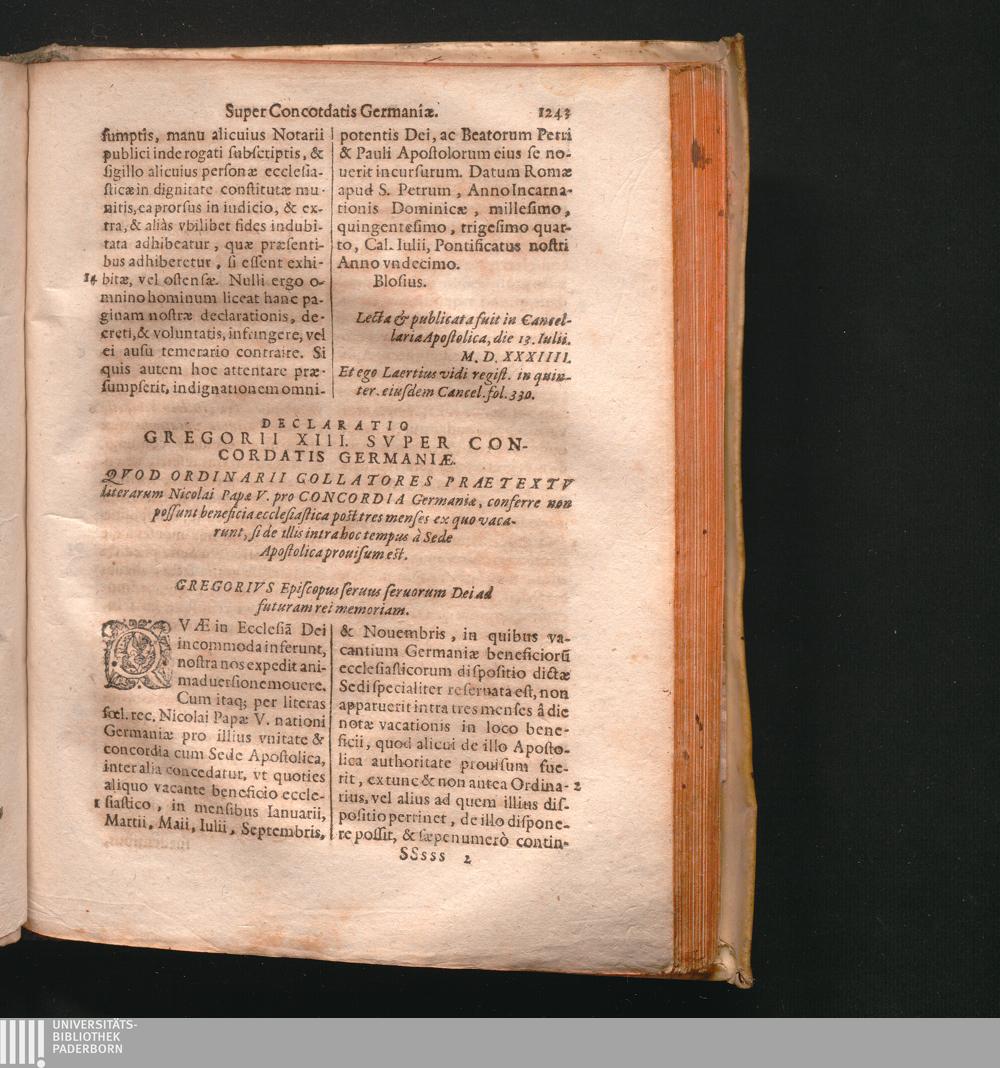 Super Concordatis Germaniæ. 1243
sumptis, manu alicuius Notarii
publici inde rogati subscriptis, &
sigillo alicuius personæ ecclesia-
sticæ in dignitate constitutæ mu-
nitis, ea prorsus in iudicio, & ex-
tra, & aliàs vbilibet fides indubi-
tata adhibeatur, quæ præsenti-
bus adhiberetur, si essent exhi-
14 bitæ, vel ostensæ. Nulli ergo o-
mnino hominum liceat hanc pa-
ginam nostræ declarationis, de-
creti, & voluntatis, infringere, vel
ei ausu temerario contraire. Si
quis autem hoc attentare præ-
sumpserit, indignationem omni-
potentis Dei, ac Beatorum Petri
& Pauli Apostolorum eius se no-
uerit incursurum. Datum Romæ
apud S. Petrum, Anno Incarna-
tionis Dominicæ, millesimo,
quingentesimo, trigesimo quar-
to, Cal. Iulii, Pontificatus nostri
Anno vndecimo.
Blosius.
Lecta & publicata fuit in Cancel-
laria Apostolica, die 13. Iulii.
M. D. XXXIIII.
Et ego Laertius vidi regist. in quin-
ter. eiusdem Cancel. fol. 330.
DECLARATIO
GREGORII XIII. SVPER CON-
CORDATIS GERMANIÆ.
QVOD ORDINARII COLLATORES PRAETEXTV
literarum Nicolai Papæ V. pro CONCORDIA Germaniæ, conferre non
possunt beneficia ecclesiastica post tres menses ex quo vaca-
runt, si de illis intra hoc tempus à Sede
Apostolica prouisum est.
GREGORIVS Episcopus seruus seruorum Dei ad
futuram rei memoriam.
QVÆ in Ecclesiā Dei
incommoda inferunt,
nostra nos expedit ani-
maduersione mouere.
Cum itaq; per literas
fœl. rec. Nicolai Papæ V. nationi
Germaniæ pro illius vnitate &
concordia cum Sede Apostolica,
inter alia concedatur, vt quoties
aliquo vacante beneficio eccle-
1 siastico, in mensibus Ianuarii,
Martii, Maii, Iulii, Septembris,
& Nouembris, in quibus va-
cantium Germaniæ beneficiorū
ecclesiasticorum dispositio dictæ
Sedi specialiter reseruata est, non
apparuerit intra tres menses â die
notæ vacationis in loco bene-
ficii, quod alicui de illo Aposto-
lica authoritate prouisum fue-
rit, ex tunc & non antea Ordina- 2
rius, vel alius ad quem illius dis-
positio pertinet, de illo dispone-
re possit, & sæpenumerò contin-
SSsss 2
UNIVERSITÄTS-
BIBLIOTHEK
PADERBORN